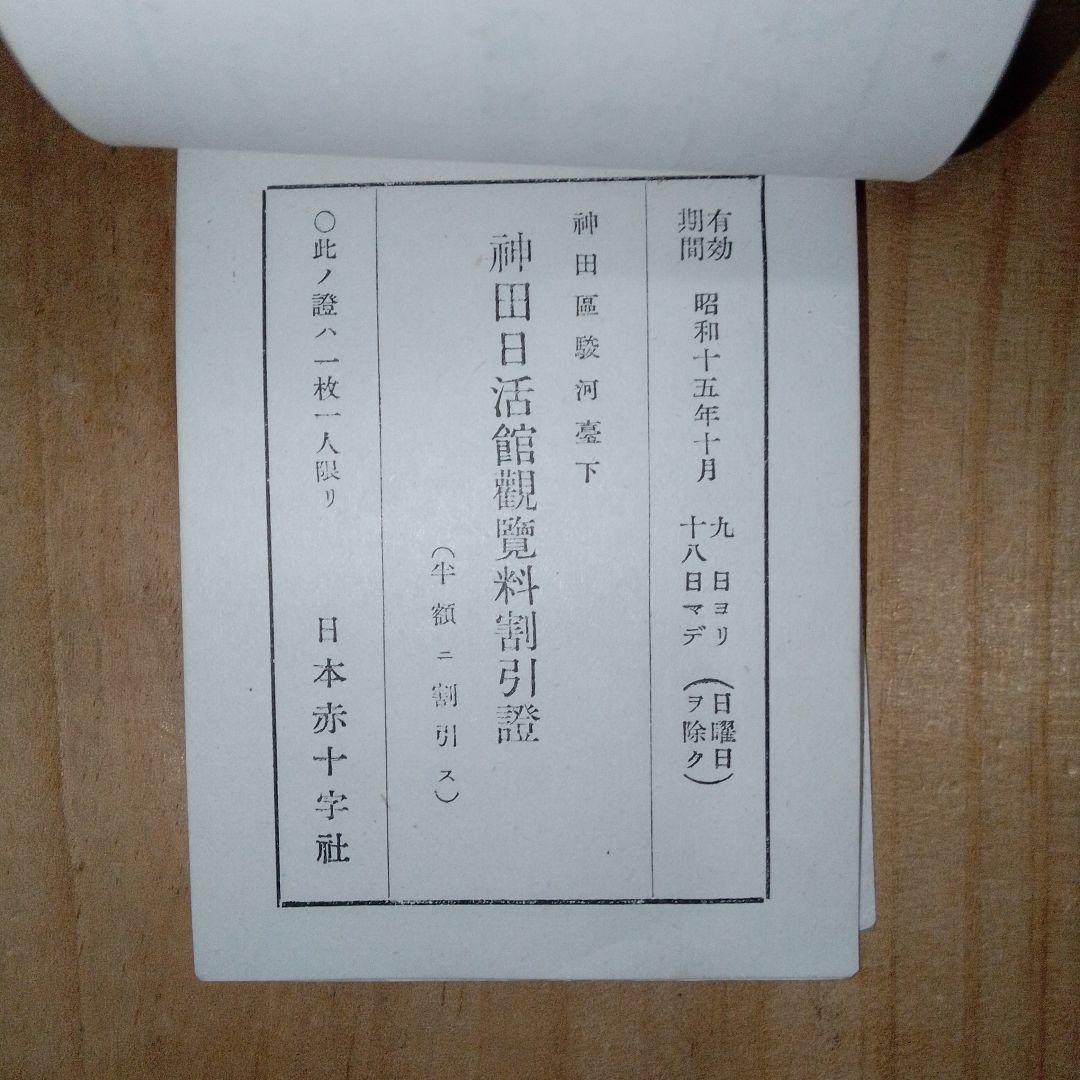 有効期間 昭和十五年十月 九日ヨリ十八日マデ (日曜日ヲ除ク)
神田區駿河臺下
神田日活館觀覽料割引證
(半額ニ割引ス)
○此ノ證ハ一枚一人限リ 日本赤十字社